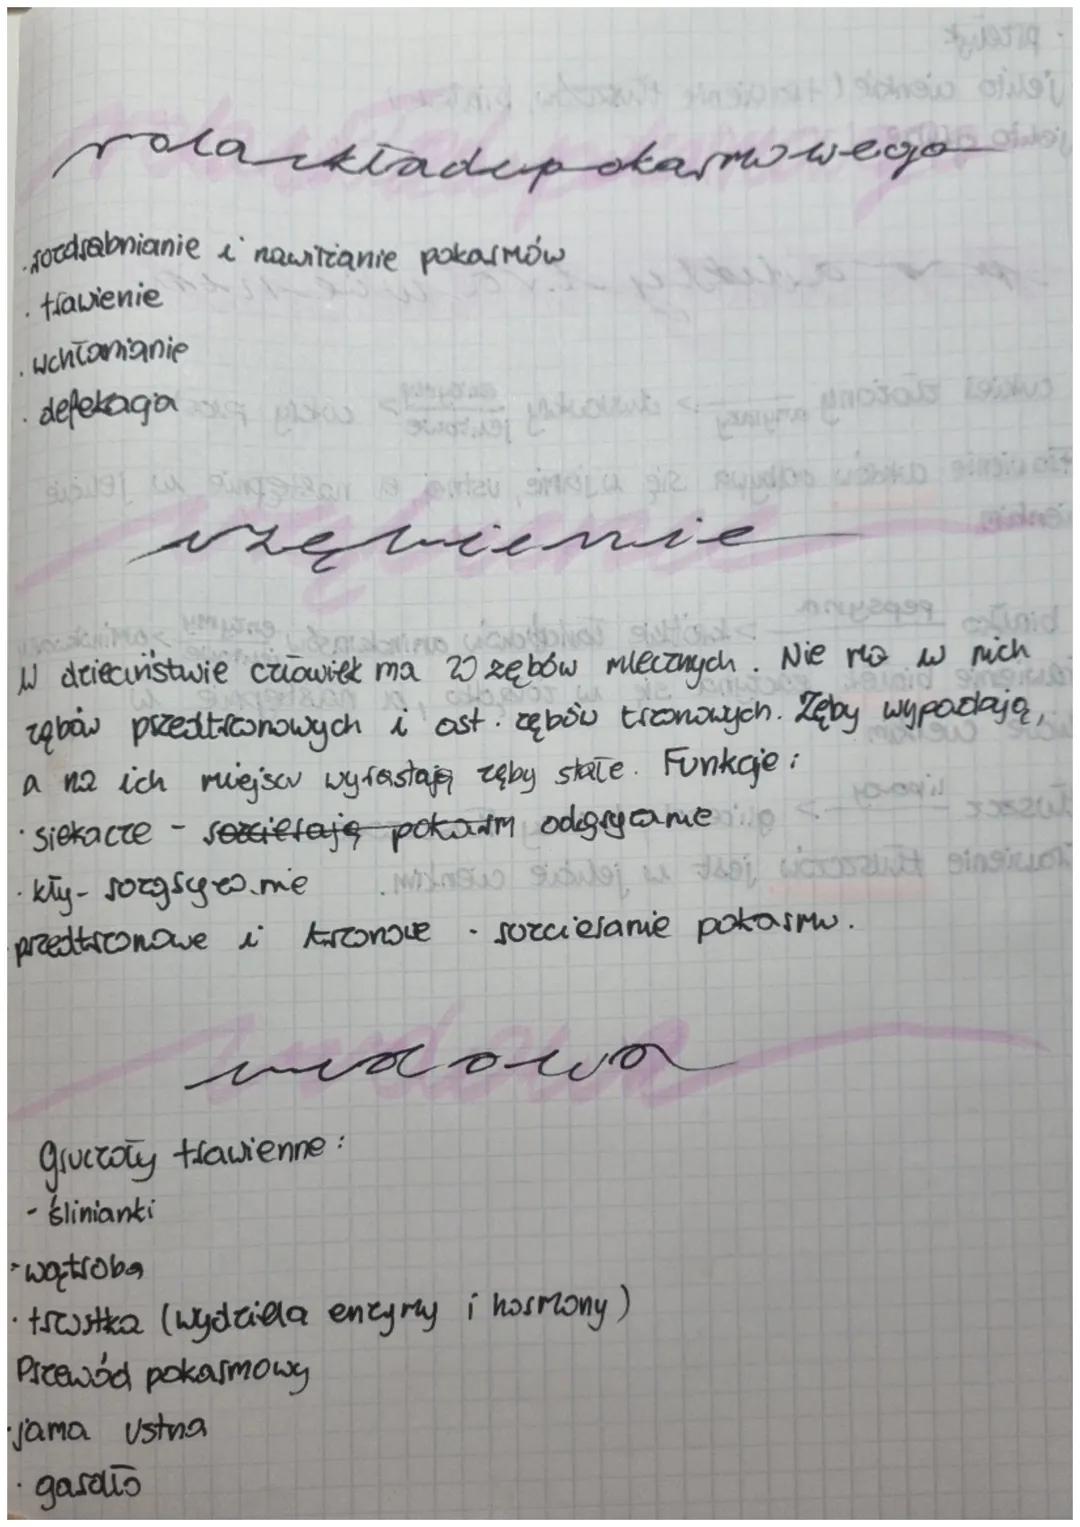 rola układu pokarmowego
· rozdrabnianie i nawilżanie pokarmów
· trawienie
· wchłanianie
· defekacja
uzębienie
W dzieciństwie człowiek ma 20 zębów mlecznych. Nie ma w nich
zębów przedtrzonowych i ost. zębów trzonowych. Zęby wypadają,
a na ich miejscu wyrastają zęby stałe. Funkcje:
· siekacze - rozcierają pokarm odgryzanie
· kły - rozgryzanie
przedtrzonowe i trzonowe - rozcieranie pokarmu.
budowa
gruczoły trawienne:
- ślinianki
- wątroba
· trzustka (wydziela enzymy i hormony)
Przewód pokarmowy
· jama ustna
· gardło